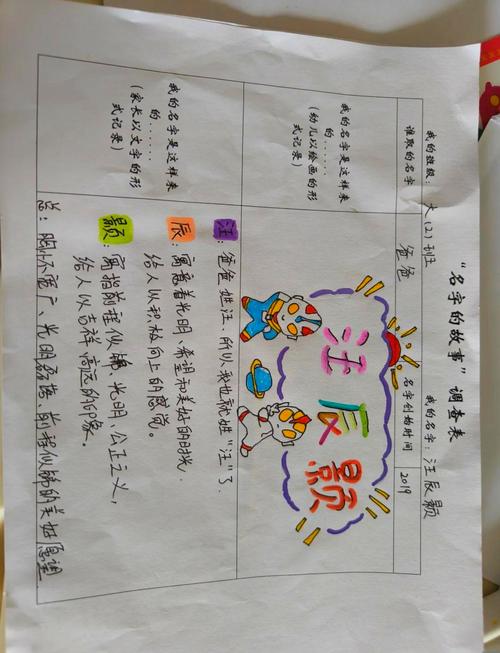 “名字的故事”调查表
我的班级：大(2)班 我的名字：汪辰颢
谁取的名字 爸爸 名字创始时间 2019
我的名字是这样来
的……
(幼儿以绘画的形
式记录)
汪辰颢
我的名字是这样来
的……
(家长以文字的形
式记录)
汪：爸爸姓汪，所以我也就姓“汪”了.
辰：寓意着光明、希望和美好的时光.
给人以积极向上的感觉。
颢：寓指前程似锦、光明、公正之义，
给人以吉祥、高远的印象。
总：胸怀宽广、光明磊落、前程似锦的美好愿望